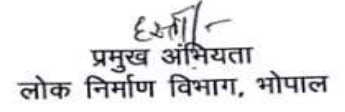 हस्ता/-
प्रमुख अभियंता
लोक निर्माण विभाग, भोपाल